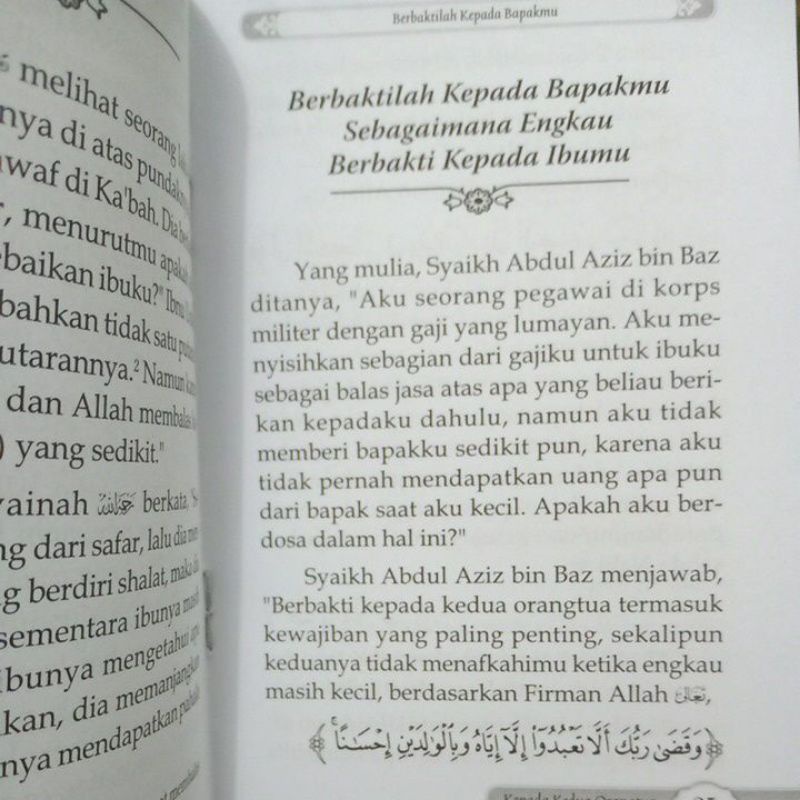 melihat seorang
nya di atas
waf di Ka'bah. Dia
menurutmu
baikan ibuku?"
bahkan tidak satu
utarannya.² Namun
dan Allah membalas
) yang sedikit."
ainah berkata,
ng dari safar, lalu dia
g berdiri shalat, maka
sementara ibunya
ibunya mengetahui
kan, dia memanjangkan
nya mendapatkan
Berbaktilah Kepada Bapakmu
Berbaktilah Kepada Bapakmu
Sebagaimana Engkau
Berbakti Kepada Ibumu
Yang mulia, Syaikh Abdul Aziz bin Baz
ditanya, "Aku seorang pegawai di korps
militer dengan gaji yang lumayan. Aku me-
nyisihkan sebagian dari gajiku untuk ibuku
sebagai balas jasa atas apa yang beliau beri-
kan kepadaku dahulu, namun aku tidak
memberi bapakku sedikit pun, karena aku
tidak pernah mendapatkan uang apa pun
dari bapak saat aku kecil. Apakah aku ber-
dosa dalam hal ini?"
Syaikh Abdul Aziz bin Baz menjawab,
"Berbakti kepada kedua orangtua termasuk
kewajiban yang paling penting, sekalipun
keduanya tidak menafkahimu ketika engkau
masih kecil, berdasarkan Firman Allah تعالى,
﴿وَقَضَىٰ رَبُّكَ أَلَّا تَعْبُدُوٓا۟ إِلَّآ إِيَّاهُ وَبِٱلْوَٰلِدَيْنِ إِحْسَٰنًا ۚ﴾
Kepada Kedua